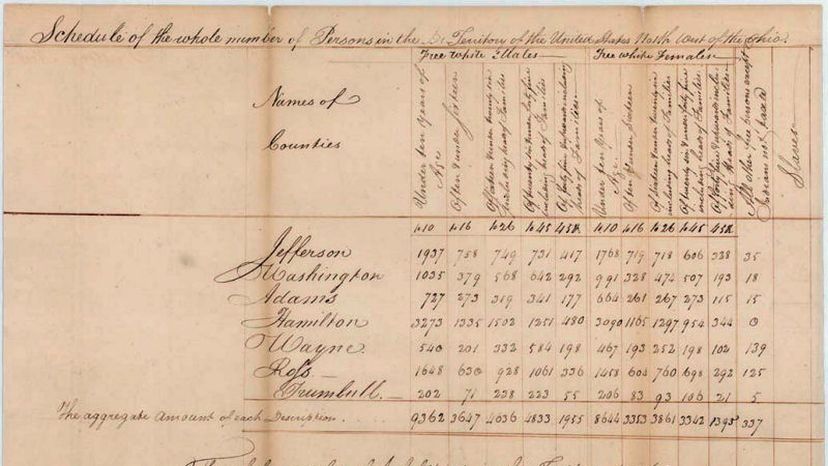 Schedule of the whole number of Persons in the Territory of the United States North West of the Ohio.
Free White Males Free White Females
Names of
Counties
Under ten years of Age
Of ten & under sixteen
Of sixteen & under twenty six including heads of Families
Of twenty six & under forty five including heads of Families
Of forty five & upwards including heads of Families
Under ten years of Age
Of ten & under Sixteen
Of sixteen & under twenty six including heads of Families
Of twenty six & under forty five including heads of Families
Of forty five & upwards including Heads of Families
All other free persons except Indians not taxed
Slaves
to 10 to 16 to 26 to 45 45 to 10 to 16 to 26 to 45 45
Jefferson 1937 758 749 731 417 1768 719 718 606 328 35
Washington 1035 379 568 642 292 991 328 474 507 193 18
Adams 727 273 319 341 177 664 261 267 273 115 15
Hamilton 3273 1335 1502 1251 480 3090 1165 1297 954 344 0
Wayne 540 201 332 584 198 467 193 252 198 102 139
Ross 1648 630 928 1061 336 1458 604 760 698 292 125
Trumbull 202 71 238 223 55 206 83 93 106 21 5
The aggregate amount of each Description 9362 3647 4636 4833 1955 8644 3353 3861 3342 1395 337